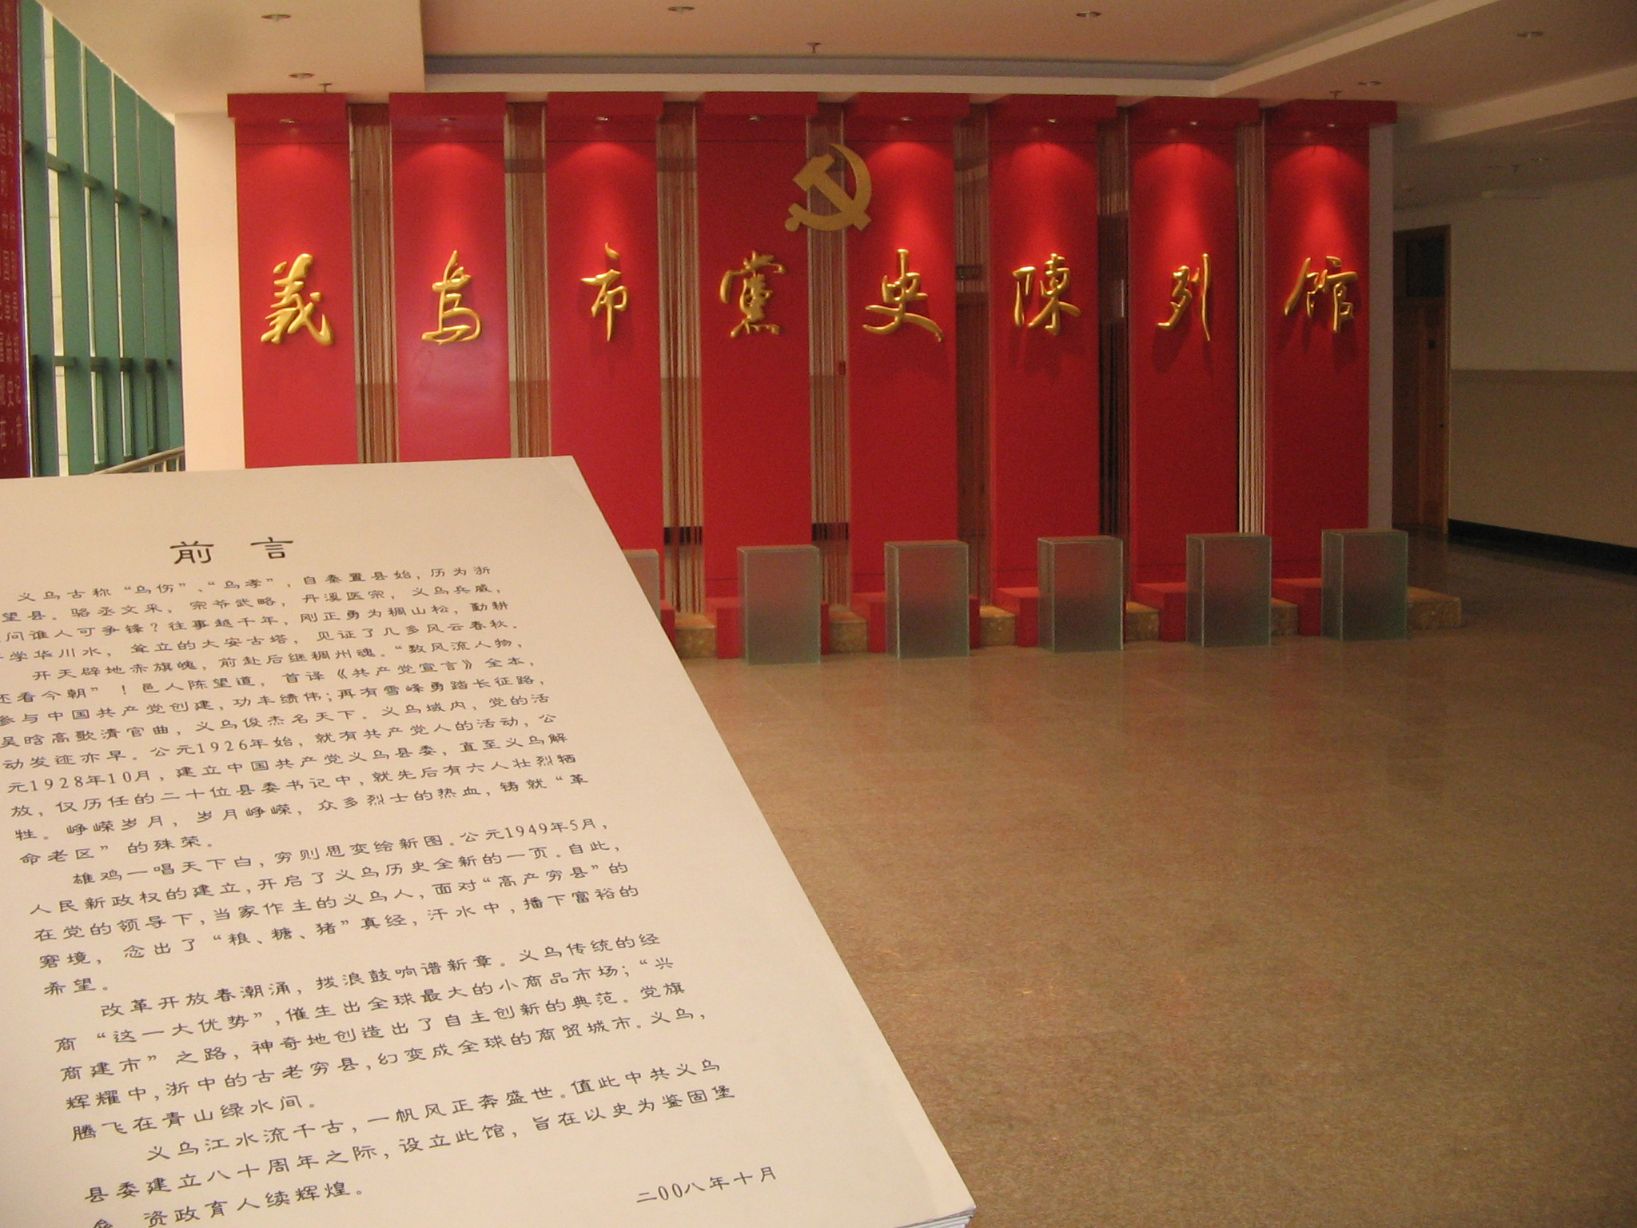 義烏市黨史陳列館
前言
义乌古称“乌伤”、“乌孝”，自秦置县始，历为浙
望县。骆丞文采，宗爷武略，丹溪医宗，义乌兵威，
问谁人可争锋？往事越千年，刚正勇为稠山松，勤耕
学华川水，耸立的大安古塔，见证了几多风云春秋。
开天辟地赤旗魄，前赴后继稠州魂。“数风流人物，
还看今朝”！邑人陈望道，首译《共产党宣言》全本，
参与中国共产党创建，功丰绩伟；再有雪峰勇踏长征路，
吴晗高歌清官曲，义乌俊杰名天下。义乌域内，党的活
动发迹亦早。公元1926年始，就有共产党人的活动，公
元1928年10月，建立中国共产党义乌县委，直至义乌解
放，仅历任的二十位县委书记中，就先后有六人壮烈牺
牲。峥嵘岁月，岁月峥嵘，众多烈士的热血，铸就“革
命老区”的殊荣。
雄鸡一唱天下白，穷则思变绘新图。公元1949年5月，
人民新政权的建立，开启了义乌历史全新的一页。自此，
在党的领导下，当家作主的义乌人，面对“高产穷县”的
窘境，念出了“粮、糖、猪”真经，汗水中，播下富裕的
希望。
改革开放春潮涌，拨浪鼓响谱新章。义乌传统的经
商“这一大优势”，催生出全球最大的小商品市场；“兴
商建市”之路，神奇地创造出了自主创新的典范。党旗
辉耀中，浙中的古老穷县，幻变成全球的商贸城市。义乌，
腾飞在青山绿水间。
义乌江水流千古，一帆风正奔盛世。值此中共义乌
县委建立八十周年之际，设立此馆，旨在以史为鉴固堡
垒，资政育人续辉煌。
二00八年十月